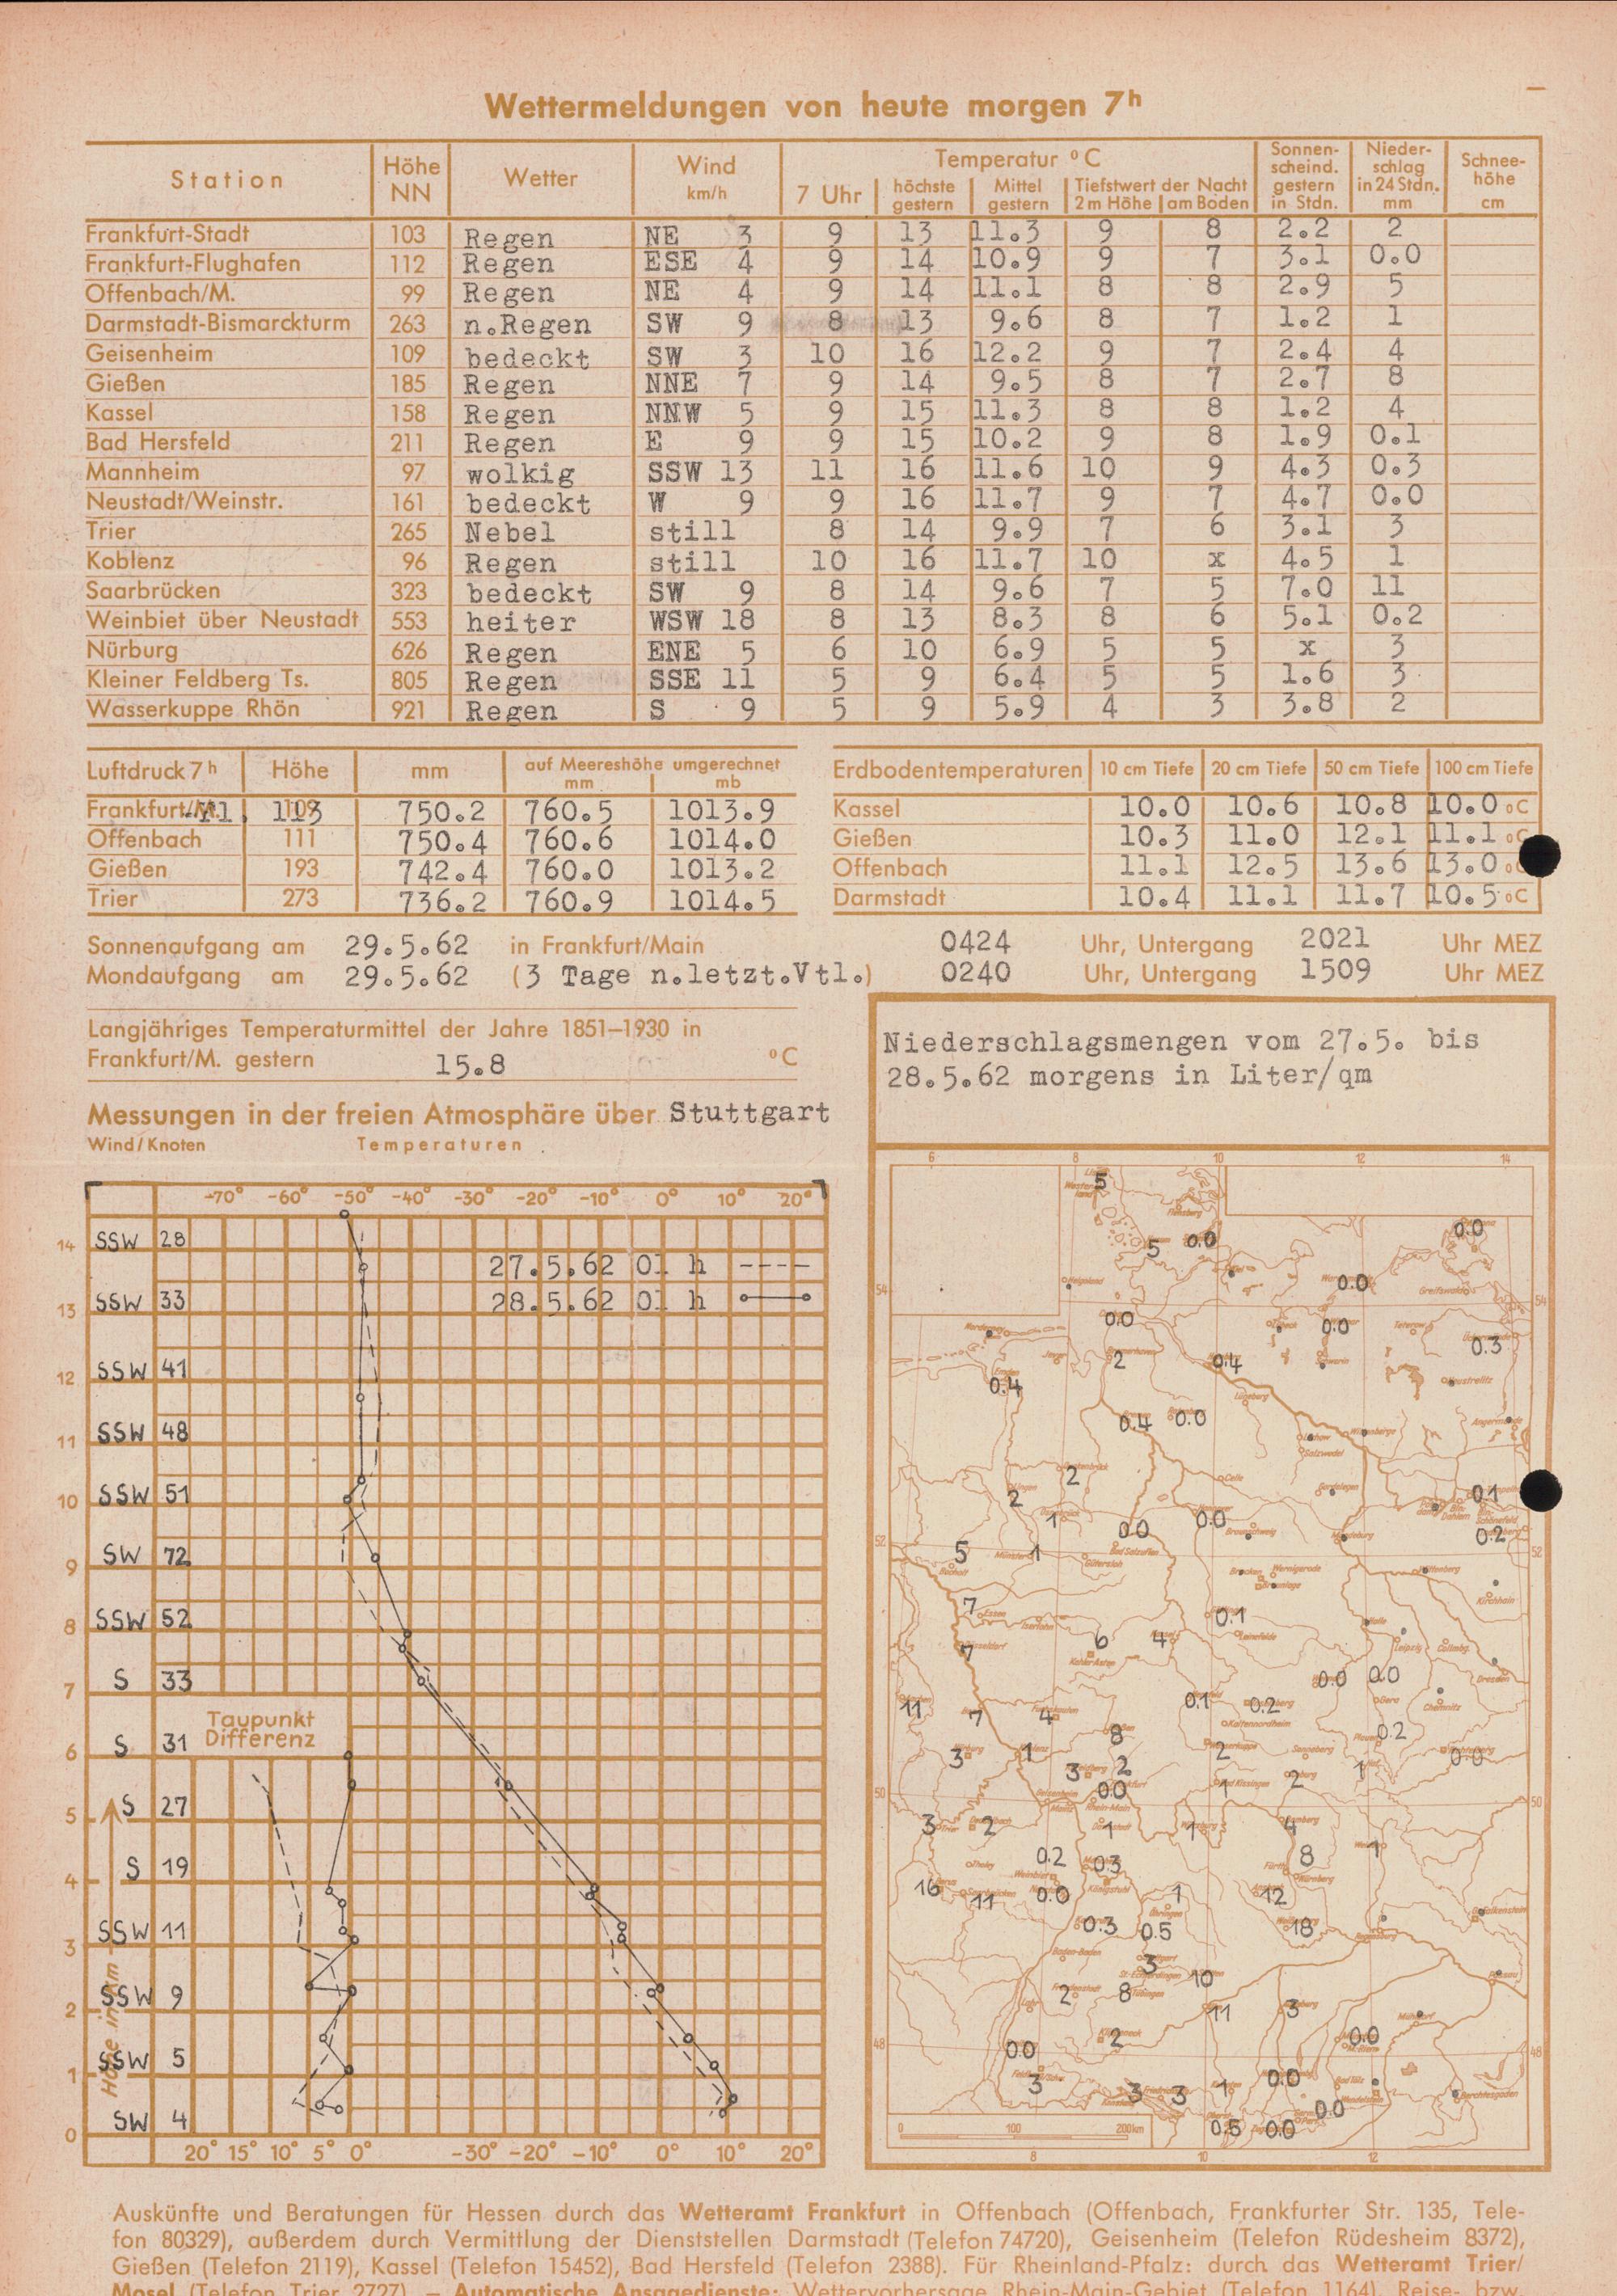 Wettermeldungen von heute morgen 7h
Station | Höhe NN | Wetter | Wind km/h | Temperatur °C: 7 Uhr | höchste gestern | Mittel gestern | Tiefstwert der Nacht 2 m Höhe | am Boden | Sonnenscheind. gestern in Stdn. | Niederschlag in 24 Stdn. mm | Schneehöhe cm
Frankfurt-Stadt 103 Regen NE 3 9 13 11.3 9 8 2.2 2
Frankfurt-Flughafen 112 Regen ESE 4 9 14 10.9 9 7 3.1 0.0
Offenbach/M. 99 Regen NE 4 9 14 11.1 8 8 2.9 5
Darmstadt-Bismarckturm 263 n.Regen SW 9 8 13 9.6 8 7 1.2 1
Geisenheim 109 bedeckt SW 3 10 16 12.2 9 7 2.4 4
Gießen 185 Regen NNE 7 9 14 9.5 8 7 2.7 8
Kassel 158 Regen NNW 5 9 15 11.3 8 8 1.2 4
Bad Hersfeld 211 Regen E 9 9 15 10.2 9 8 1.9 0.1
Mannheim 97 wolkig SSW 13 11 16 11.6 10 9 4.3 0.3
Neustadt/Weinstr. 161 bedeckt W 9 9 16 11.7 9 7 4.7 0.0
Trier 265 Nebel still 8 14 9.9 7 6 3.1 3
Koblenz 96 Regen still 10 16 11.7 10 x 4.5 1
Saarbrücken 323 bedeckt SW 9 8 14 9.6 7 5 7.0 11
Weinbiet über Neustadt 553 heiter WSW 18 8 13 8.3 8 6 5.1 0.2
Nürburg 626 Regen ENE 5 6 10 6.9 5 5 x 3
Kleiner Feldberg Ts. 805 Regen SSE 11 5 9 6.4 5 5 1.6 3
Wasserkuppe Rhön 921 Regen S 9 5 9 5.9 4 3 3.8 2
Luftdruck 7h | Höhe | mm | auf Meereshöhe umgerechnet mm | mb
Frankfurt/M.-Fl. 113 750.2 760.5 1013.9
Offenbach 111 750.4 760.6 1014.0
Gießen 193 742.4 760.0 1013.2
Trier 273 736.2 760.9 1014.5
Erdbodentemperaturen | 10 cm Tiefe | 20 cm Tiefe | 50 cm Tiefe | 100 cm Tiefe
Kassel 10.0 10.6 10.8 10.0 °C
Gießen 10.3 11.0 12.1 11.1 °C
Offenbach 11.1 12.5 13.6 13.0 °C
Darmstadt 10.4 11.1 11.7 10.5 °C
Sonnenaufgang am 29.5.62 in Frankfurt/Main 0424 Uhr, Untergang 2021 Uhr MEZ
Mondaufgang am 29.5.62 (3 Tage n.letzt.Vtl.) 0240 Uhr, Untergang 1509 Uhr MEZ
Langjähriges Temperaturmittel der Jahre 1851–1930 in
Frankfurt/M. gestern 15.8 °C
Messungen in der freien Atmosphäre über Stuttgart
Wind/Knoten Temperaturen
-70° -60° -50° -40° -30° -20° -10° 0° 10° 20°
14 SSW 28
27.5.62 01 h
13 SSW 33
28.5.62 01 h
12 SSW 41
11 SSW 48
10 SSW 51
9 SW 72
8 SSW 52
7 S 33
Taupunkt
Differenz
6 S 31
5 S 27
4 S 19
3 SSW 11
2 SSW 9
1 SSW 5
0 SW 4
Höhe in km
20° 15° 10° 5° 0° -30° -20° -10° 0° 10° 20°
Niederschlagsmengen vom 27.5. bis
28.5.62 morgens in Liter/qm
6 8 10 12 14
5
5 0.0 0.0
54 0.0 54
0.0 0.0 0.3
2 0.4
0.4
0.4 0.0
2
2 0.1
1 0.0 0.0 0.2
52 5 1 52
7 0.1
7 6 4
0.0 0.0
11 7 4 0.1 0.2
8 0.2
3 1 2 0.0
3 2 2 1
50 0.0 1 50
3 2 1 1 4
0.2 0.3 8 1
16 11 0.0 1 12
0.3 0.5 18
3 10
2 8 11 3
48 0.0 2 0.0 48
3 3 3 1 0.0
0.0
0.5 0.0
0 100 200km
8 10 12
Auskünfte und Beratungen für Hessen durch das Wetteramt Frankfurt in Offenbach (Offenbach, Frankfurter Str. 135, Tele-
fon 80329), außerdem durch Vermittlung der Dienststellen Darmstadt (Telefon 74720), Geisenheim (Telefon Rüdesheim 8372),
Gießen (Telefon 2119), Kassel (Telefon 15452), Bad Hersfeld (Telefon 2388). Für Rheinland-Pfalz: durch das Wetteramt Trier/
Mosel (Telefon Trier 2727). – Automatische Ansagedienste: Wettervorhersage Rhein-Main-Gebiet (Telefon 1164), Reise- bzw.